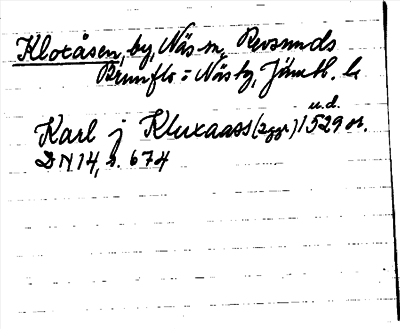 Klotåsen, by, Näs sn, Revsunds
Brunflo = Näs tg, Jämtl. l.
u.d.
Karl j Kluxaass (2ggr) 1529 or.
DN 14, s. 674